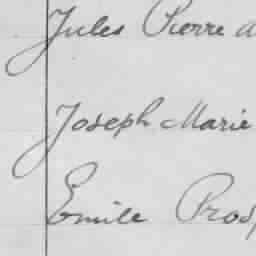 Jules Pierre
Joseph Marie
Emile